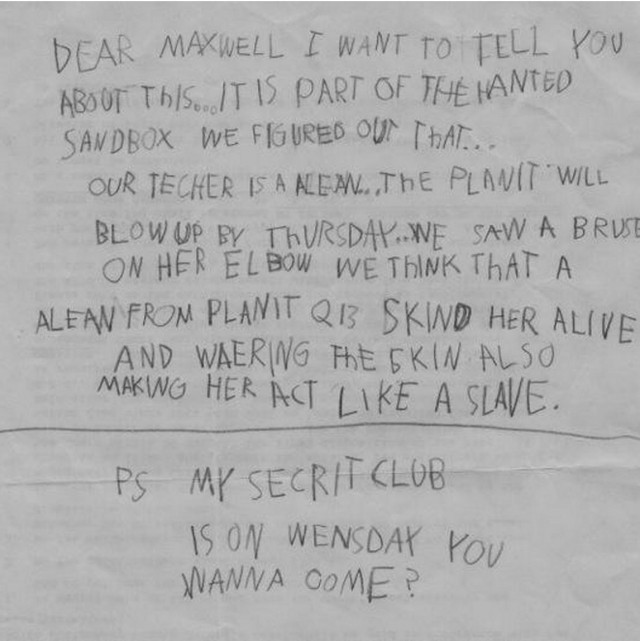 DEAR MAXWELL I WANT TO TELL YOU
ABOUT THIS...IT IS PART OF THE HANTED
SANDBOX WE FIGURED OUT THAT...
OUR TECHER IS A ALEAN...THE PLANIT WILL
BLOW UP BY THURSDAY..WE SAW A BRUSE
ON HER ELBOW WE THINK THAT A
ALEAN FROM PLANIT Q13 SKIND HER ALIVE
AND WAERING THE SKIN ALSO
MAKING HER ACT LIKE A SLAVE.
PS MY SECRIT CLUB
IS ON WENSDAY YOU
WANNA COME?